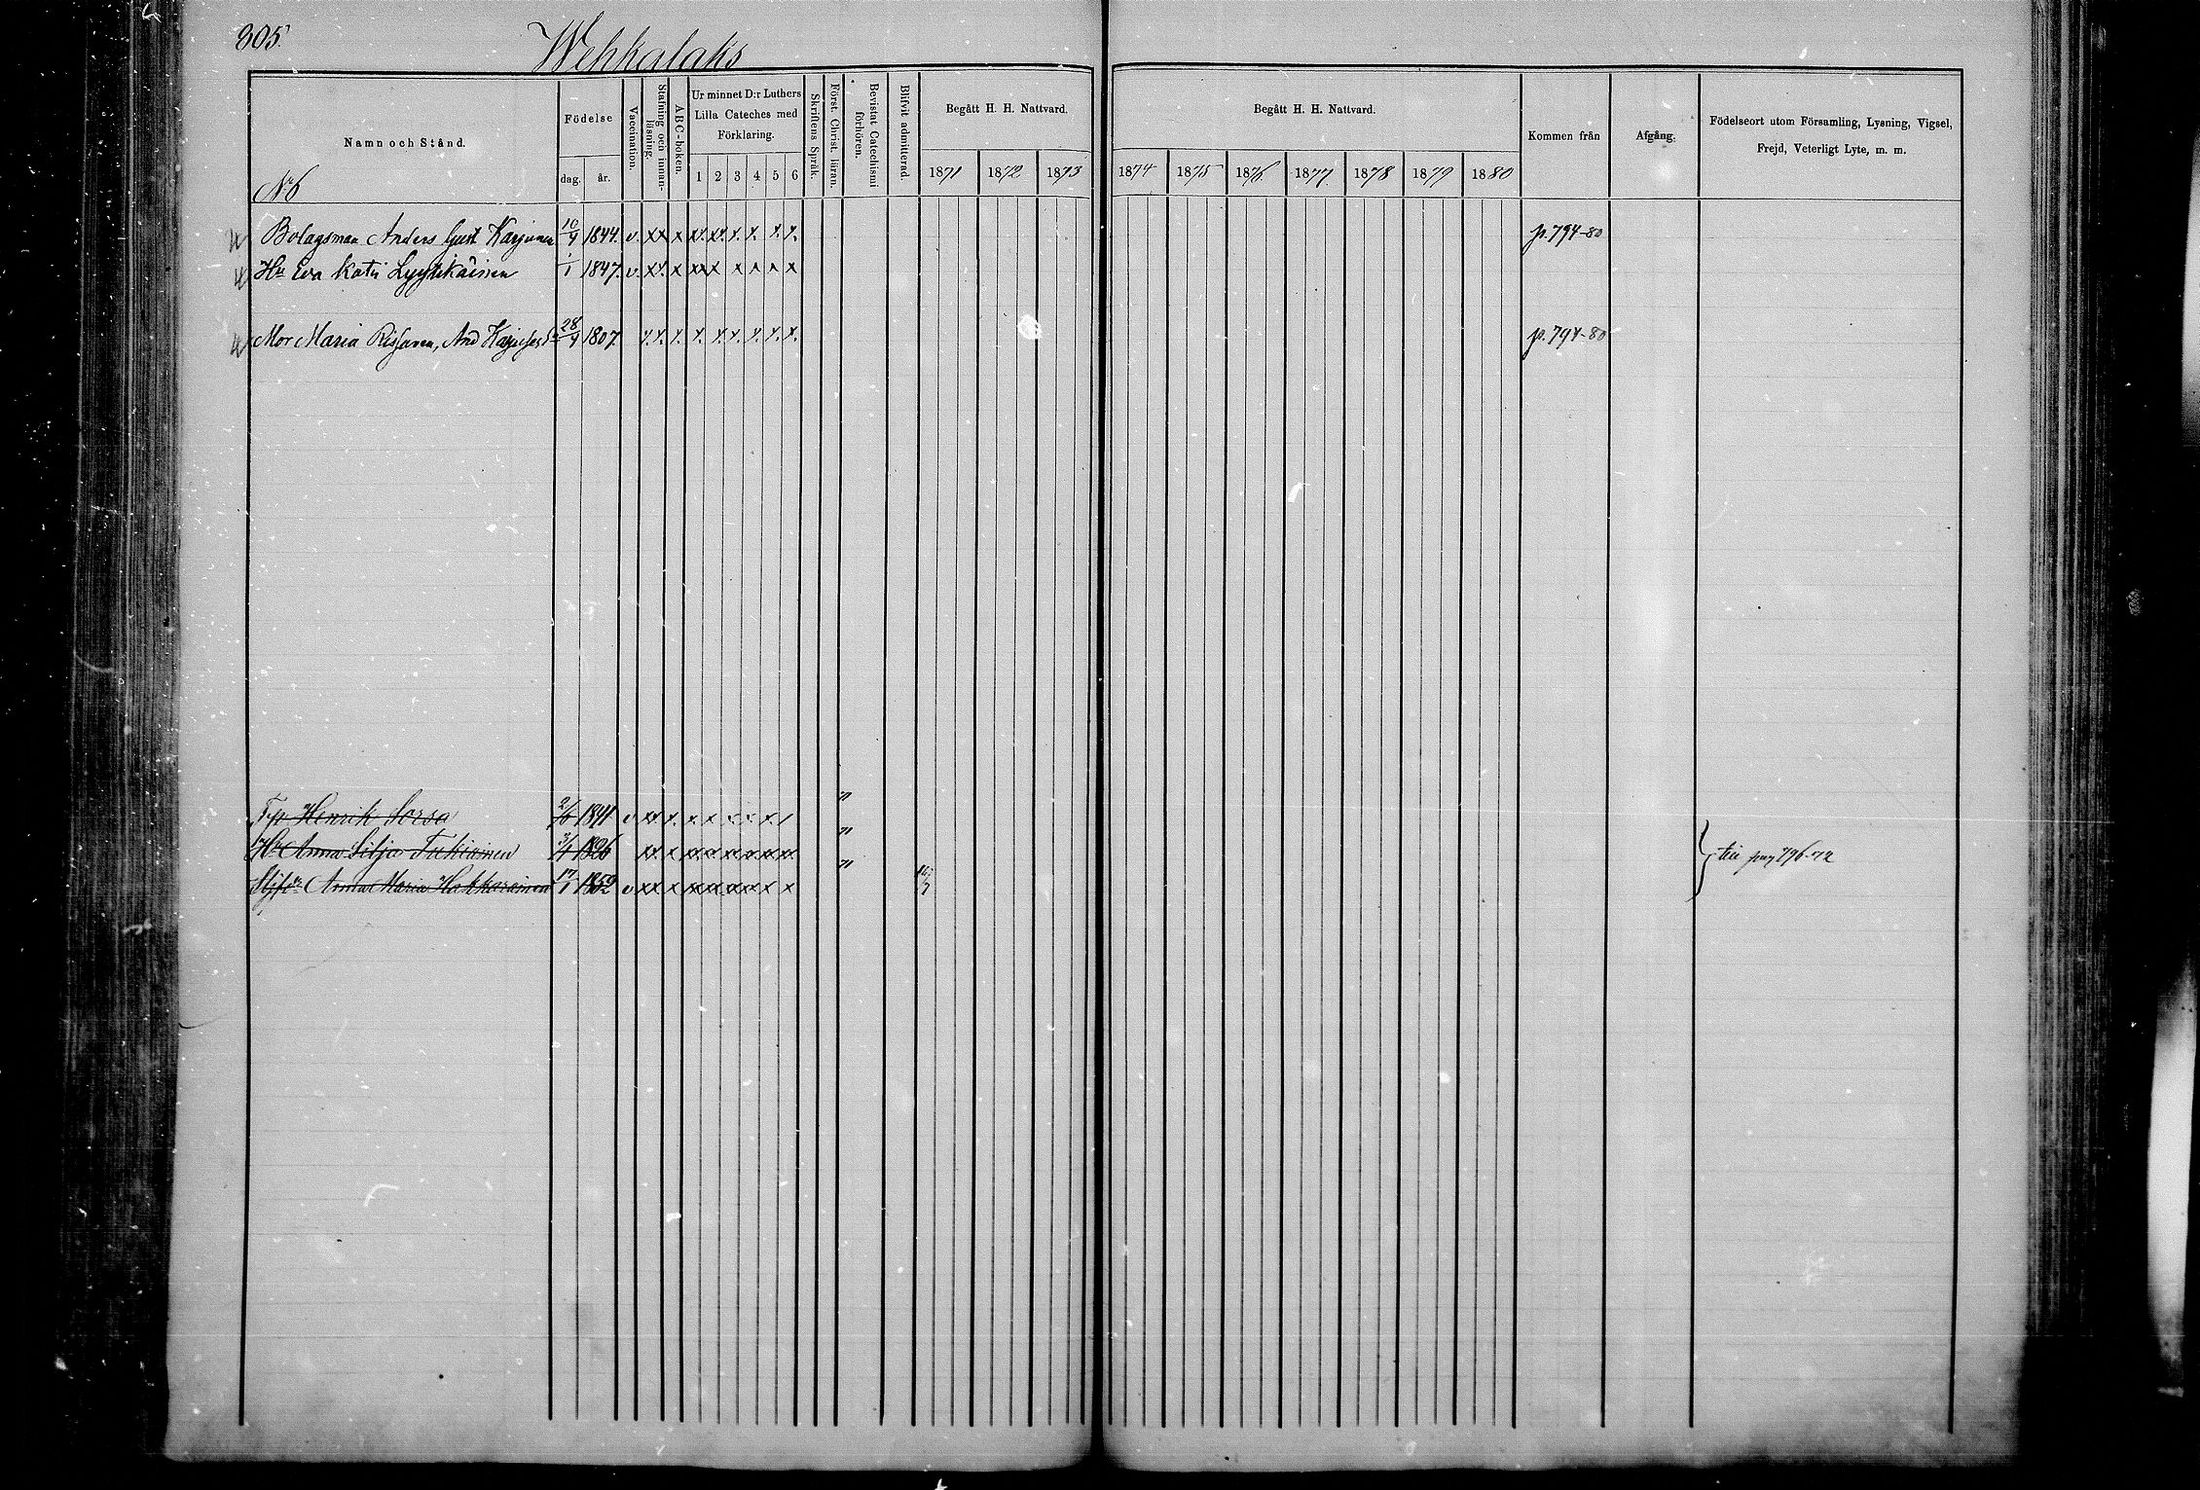 805.
Wehkalaks
Namn och Stånd.
Födelse
dag.
år.
Vaccination.
Stafning och innanläsning.
ABC-boken.
Ur minnet D:r Luthers
Lilla Cateches med
Förklaring.
1 2 3 4 5 6
Skriftens Språk.
Först. Christ. läran.
Bevistat Catechismi förhören.
Blifvit admitterad.
Begått H. H. Nattvard.
1871 1872 1873
Begått H. H. Nattvard.
1874 1875 1876 1877 1878 1879 1880
Kommen från
Afgång.
Födelseort utom Församling, Lysning, Vigsel,
Frejd, Veterligt Lyte, m. m.
No 6
Bolagsman Anders Gust Karjunen 10/4 1844. v. xx x xx. xx. x. x. x. x. p. 794-80
Hu Eva Katri Lyytikäinen 1/1 1847. v. xx. x xxx x x x x
Mor Maria Rissanen, And 28/4 1807. x.x. x. x. x. x. x. x. x. p. 794-80
Henrik Sorsa 2/6 1841 v xx. x. x x x x x /
Hu Anna Silja Tukiainen 3/4 1826 xx x
Anna Maria Hakkarainen 17/1 1852 v xx x
till pag 796-72